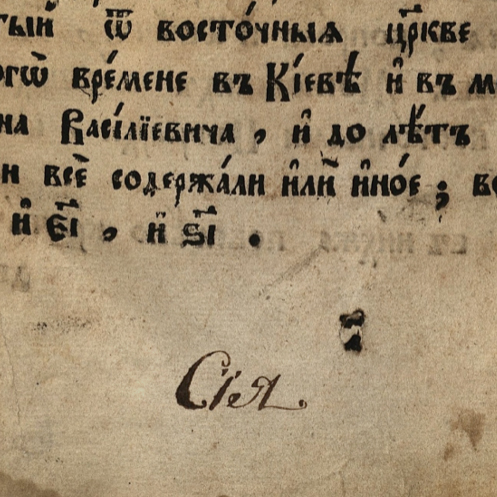 тый ѿ восто́чныѧ цр҃кве
огѡ̀ вре́мене въ Кі́евѣ и҆ въ м
на Васі́лїевича , и҆ до лѣ́тъ
и всѐ содержа́ли и҆лѝ и҆но́е ; во
и҆ є҃і , и҆ ѕ҃і .
а҃
Сїѧ